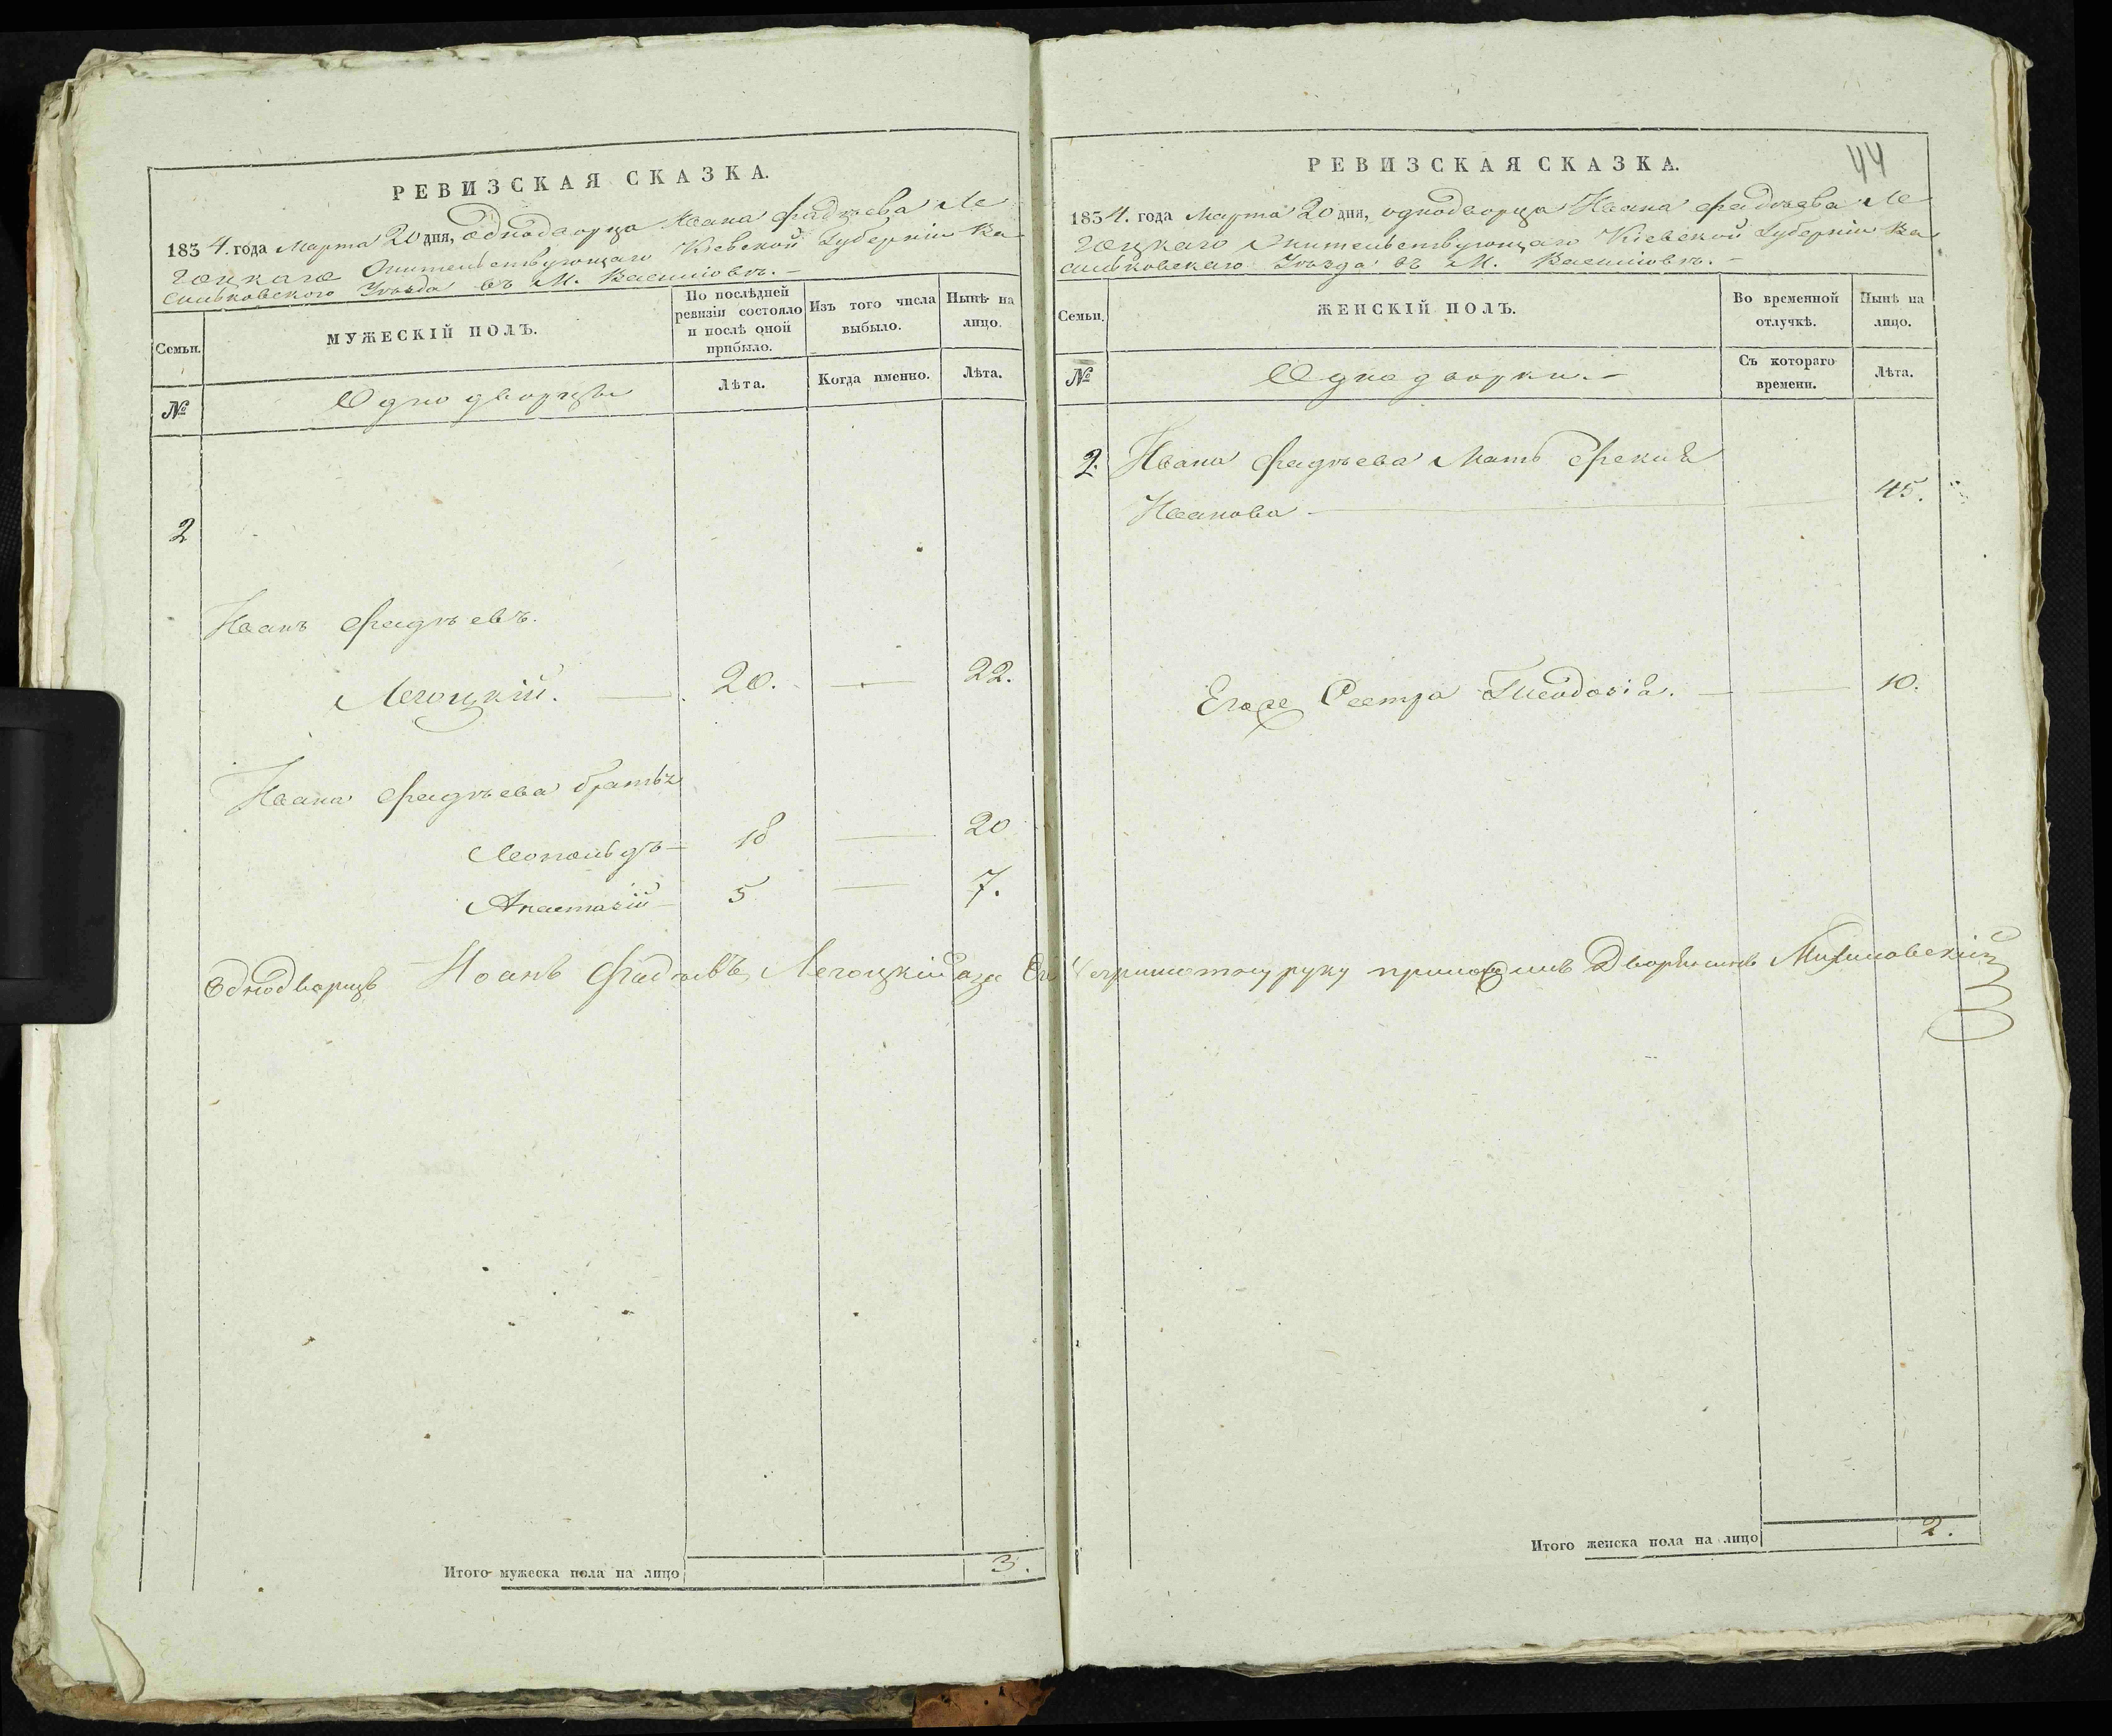 РЕВИЗСКАЯ СКАЗКА.
1834. года Марта 20 дня, однодворца Ивана Фадѣева Ле
гоцкаго Жительствующаго Кіевской Губерніи Ва
сильковского Уѣзда въ М. Василіовѣ. -
Семьи.
МУЖЕСКІЙ ПОЛЪ.
По послѣдней
ревизіи состояло
и послѣ оной
прибыло.
Изъ того числа
выбыло.
Нынѣ на
лицо.
№
Однодворцы
Лѣта.
Когда именно.
Лѣта.
2
Иванъ Фадѣевъ.
Легоцкій. — 20. — 22.
Ивана Фадѣева братья
Леопольдъ — 18 — 20
Анастазій — 5 — 7.
Однодворецъ Иоанъ Фадѣевъ Легоцкій а за Его
Итого мужеска пола на лицо 3.
РЕВИЗСКАЯ СКАЗКА.
44
1834. года Марта 20 дня, однодворца Ивана Фадѣева Ле
гоцкаго Жительствующаго Кіевской Губерніи Ва
сильковскаго Уѣзда въ М. Василіовѣ. -
Семьи.
ЖЕНСКІЙ ПОЛЪ.
Во временной
отлучкѣ.
Нынѣ на
лицо.
№
Однодворки. -
Съ котораго
времени.
Лѣта.
2. Ивана Фадѣева Мать
Иванова — 45.
Его же Сестра Теодозія. — 10.
руку приложилъ Дворянинъ
Итого женска пола на лицо 2.